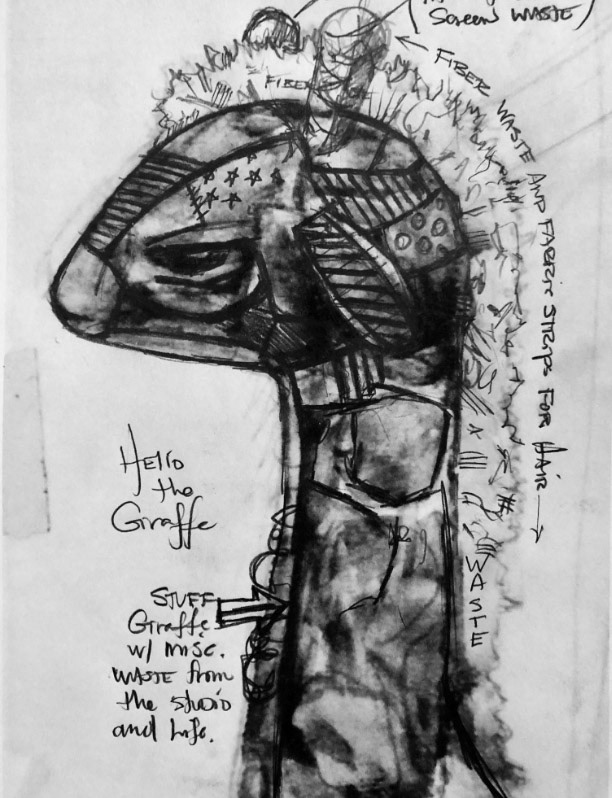 Screen WASTE)
FIBER
FIBER WASTE AND FABRIC STRIPS FOR HAIR
WASTE
Hello
the
Giraffe
STUFF
Giraffe
w/ misc.
WASTE from
the studio
and Life.